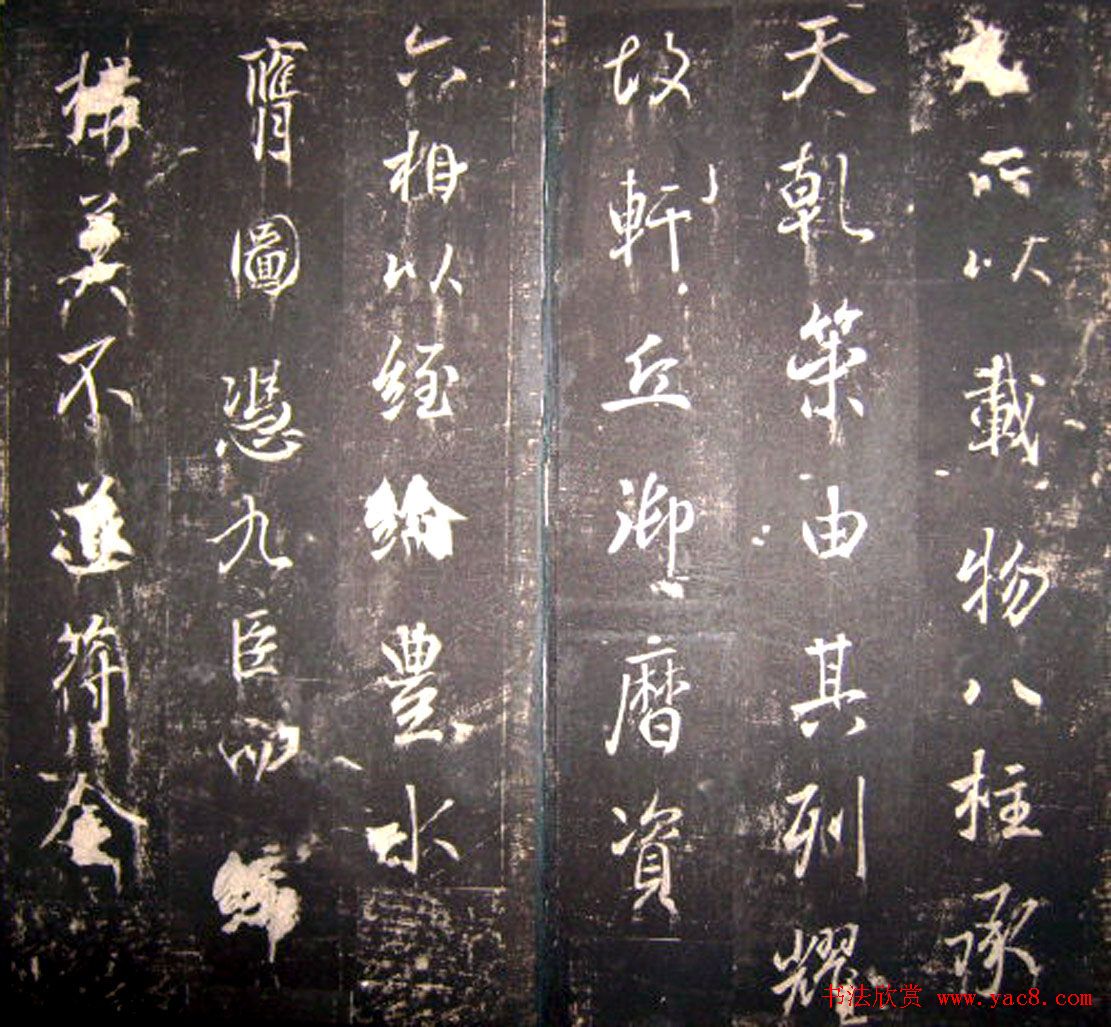 所以載物八柱承
天乾策由其列耀
故軒丘御曆資
六相以經綸豐水
膺圖憑九臣而締
構莫不道符金
书法欣赏 www.yac8.com